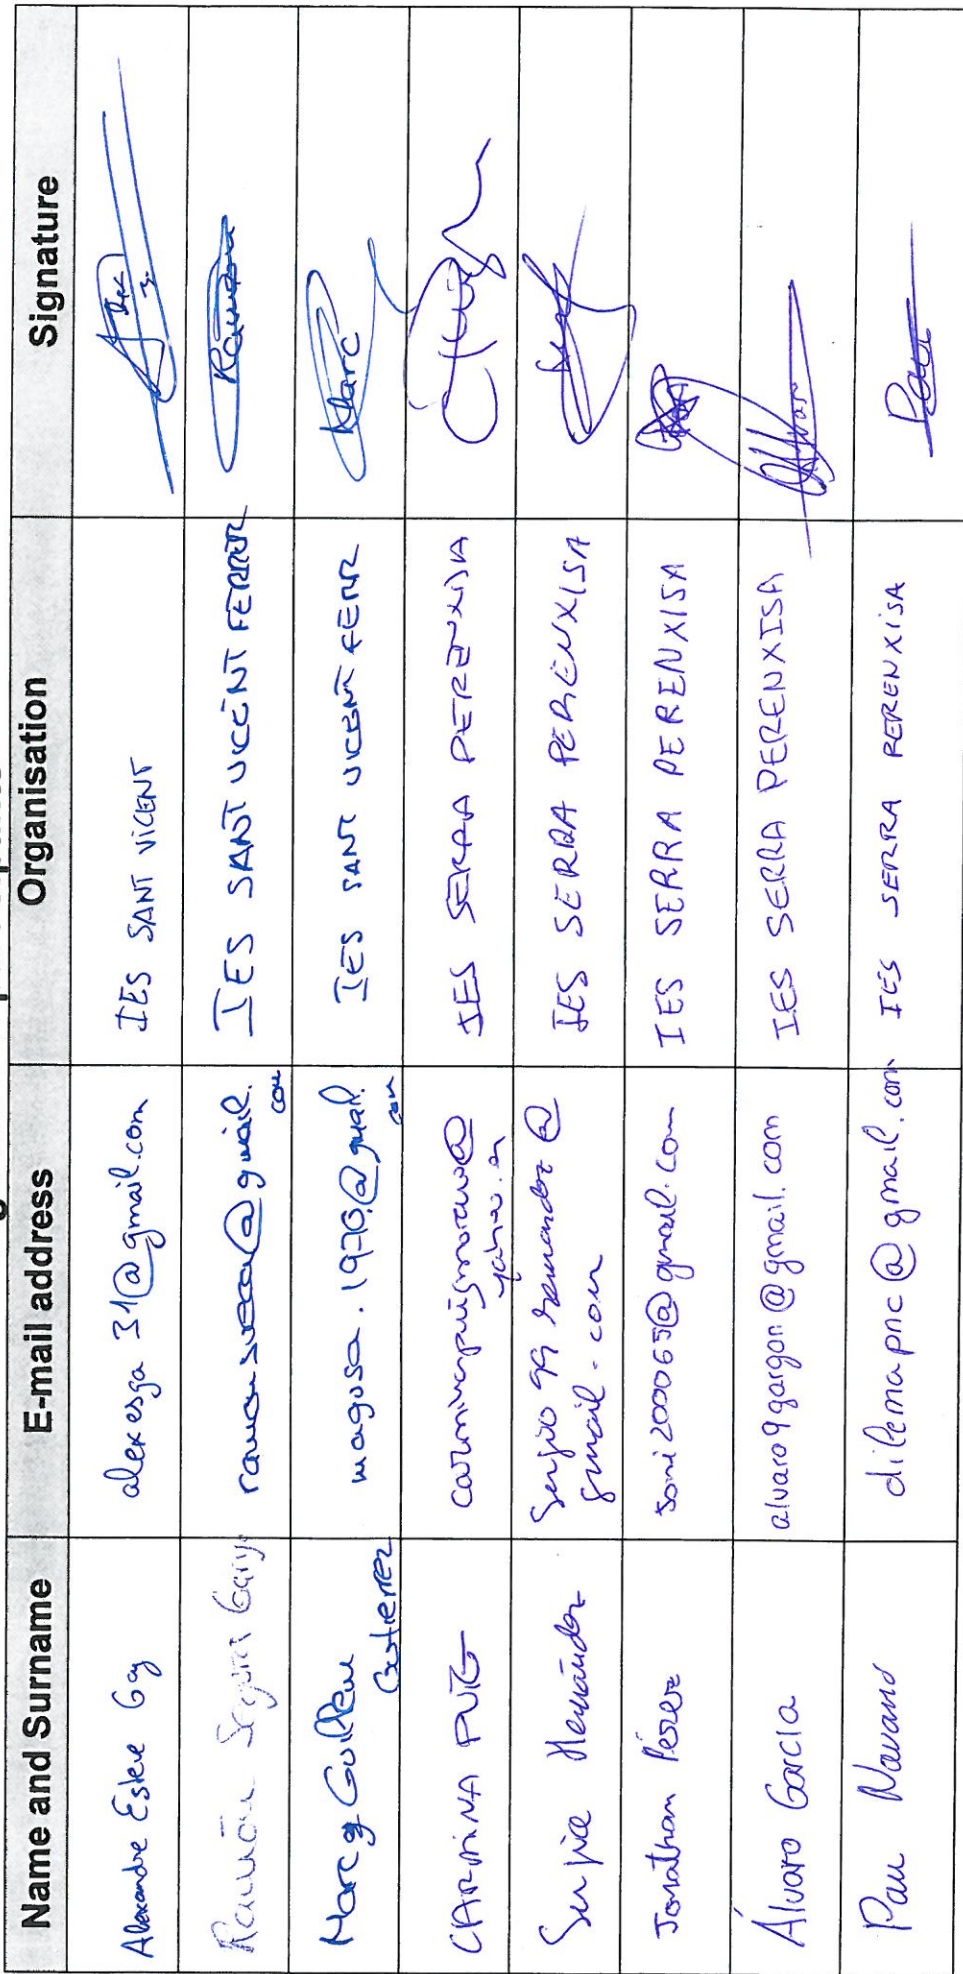 Name and Surname E-mail address Organisation Signature
Alexandre Esteve Gay alexesga31@gmail.com IES SANT VICENT Alex
Ramón Seguri @gmail. IES SANT VICENT FERRER Ramón
com
Marc Guillem magusa.1970@gmail. IES SANT VICENT FERR Marc
Gutierrez com
CARMINA PUIG carminapuigmorano@ IES SERRA PERENXISA
yahoo.es
Sergio Hernández Sergio99hernandez@ IES SERRA PERENXISA
gmail.com
Jonathan Pérez soni200065@gmail.com IES SERRA PERENXISA
Álvaro García alvaro9gargon@gmail.com IES SERRA PERENXISA Alvaro
Pau Navarro dilemapnc@gmail.com IES SERRA PERENXISA Pau